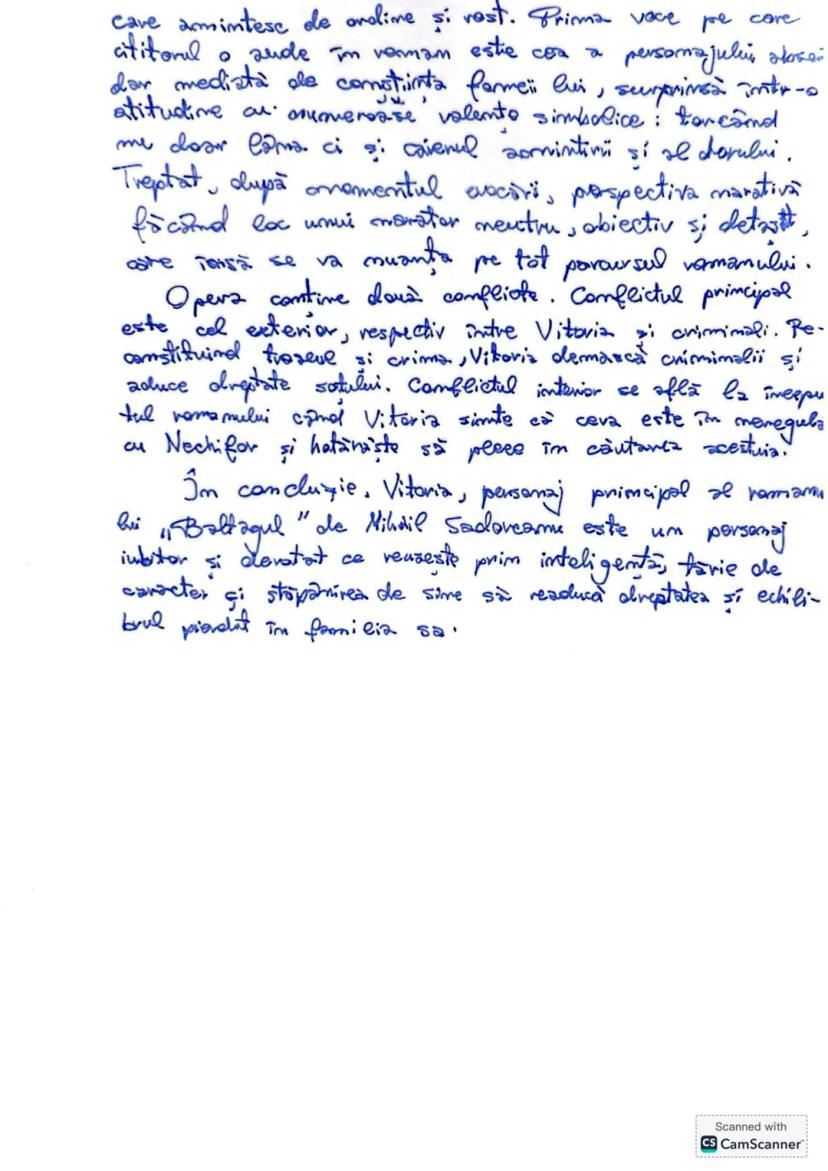 care amintesc de ordine și rost. Prima voce pe care
cititorul o aude în roman este cea a personajului absen
dar mediată de conștiința femeii lui, surprinsă într-o
atitudine cu numeroase valențe simbolice: torcând
nu doar lâna ci și caierul amintirii și al dorului.
Treptat, după momentul evocării, perspectiva narativă
făcând loc unui narator neutru, obiectiv și detașt,
care însă se va nuanța pe tot parcursul romanului.
Opera contine două conflicte. Conflictul principal
este cel exterior, respectiv între Vitoria și criminali. Re-
constituind traseul și crima, Vitoria demască criminalii și
aduce dreptate soțului. Conflictul interior se află la începu
tul romanului când Vitoria simte că ceva este în neregula
cu Nechifor și hotărăște să plece în căutarea acestuia.
În concluzie, Vitoria, personaj principal al romanu
lui „Baltagul" de Mihail Sadoveanu este un personaj
iubitor și devotat ce reușește prin inteligență, tărie de
caracter și stăpânirea de sine să readucă dreptatea și echili-
brul pierdut în familia sa.
Scanned with
CS CamScanner